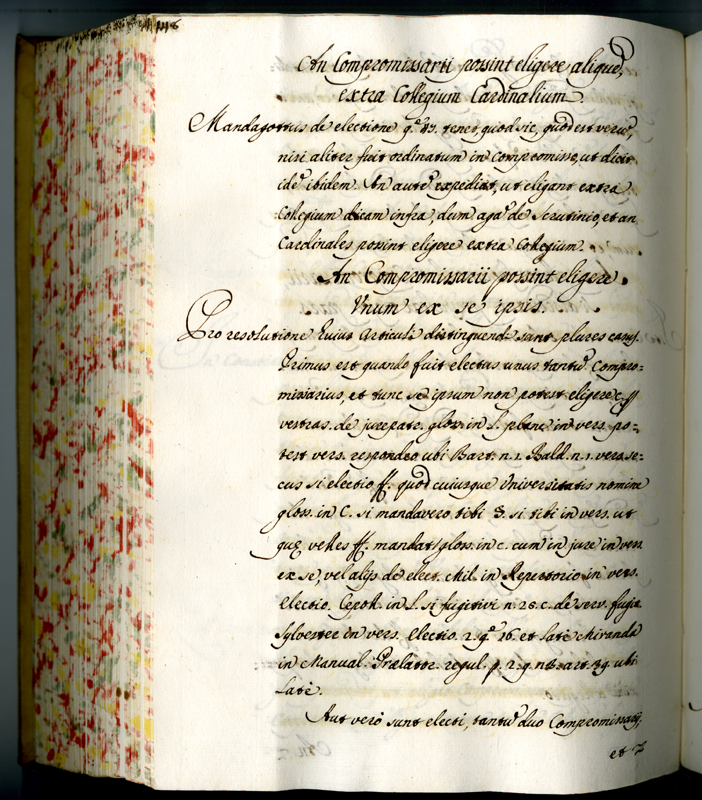 148
An Compromissarii possint eligere aliquē,
extra Collegium Cardinalium.
Mandagottus de electione q.ᵉ 43. tenet, quod sic, quod est verū,
nisi aliter fuit ordinatum in compromisso, ut dicit
idē ibidem. An autē expediat, ut eligant extra
Collegium dicam infra, dum agaʳ de Scrutinio, et an
Cardinales possint eligere extra Collegium.
An Compromissarii possint eligere
Unum ex se ipsis.
Pro resolutione huius articuli distinguendi sunt plures casus.
Primus est quando fuit electus unus tantū Compro=
missarius, et tunc se ipsum non potest eligere c. p
vestras. de jurepatr. glos. in l. plane in vers. po=
test vers. respondeo ubi Bart. n. 1. Bald. n. 1. vers. se=
cus si electio ff. quod cuiusque Universitatis nomine
glos. in C. si mandavero tibi §. si tibi in vers. ut
quę velles ff. mandat. glos. in c. cum in jure in vers.
ex se, vel alijs de elect. Mil. in Repertorio in vers.
Electio. Cepoll. in l. si fugitivi n. 20. c. de serv. fugit.
Sylvester in vers. Electio. 2. q.ᵉ 16. et latè Miranda
in Manual. Prælator. regul. p. 2. q. art. 39. ubi
Latè.
Aut verò sunt electi, tantū duo Compromissarij,
et